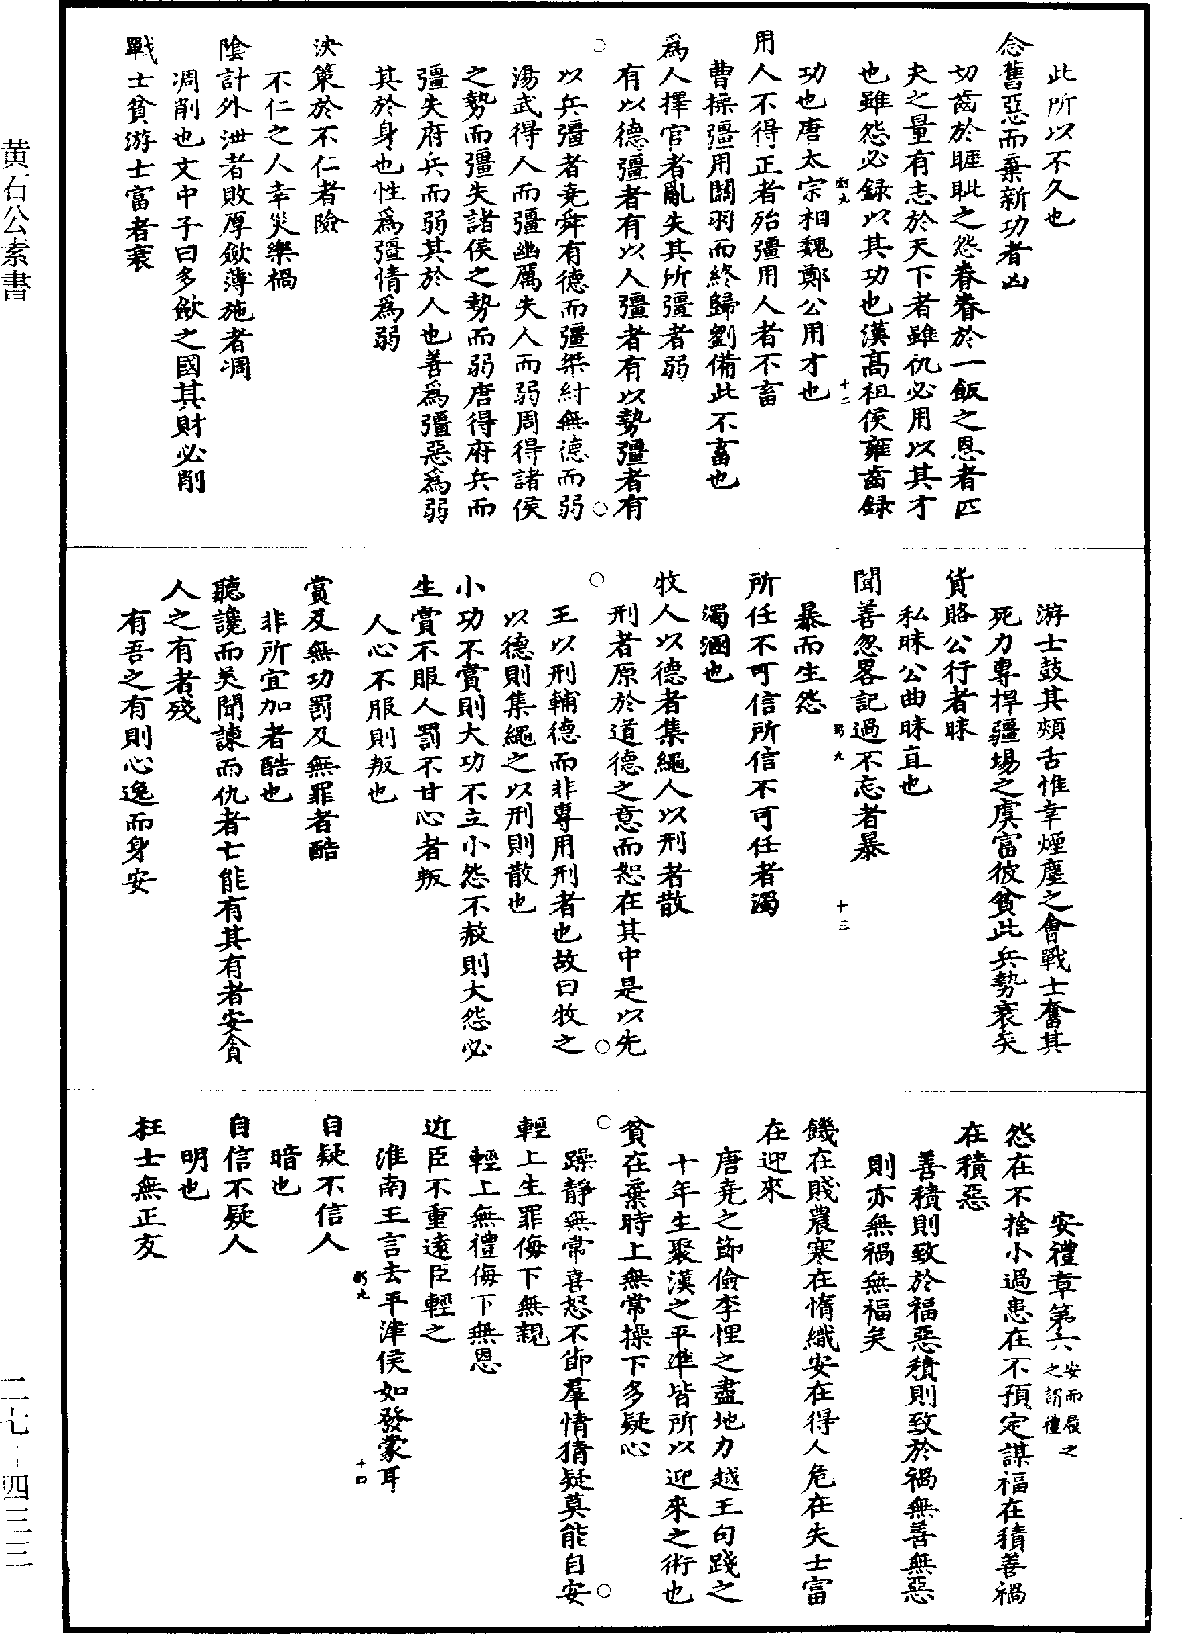 此所以不久也
念舊惡而棄新功者凶
切齒於睚眦之怨眷眷於一飯之恩者匹
夫之量有志於天下者雖仇必用以其才
也雖怨必録以其功也漢高祖侯雍齒録
功也唐太宗相魏鄭公用才也
十二
用人不得正者殆彊用人者不畜
曹操彊用關羽而終歸劉備此不畜也
為人擇官者亂失其所彊者弱
有以德彊者有以人彊者有以勢彊者有
以兵彊者堯舜有德而彊桀紂無德而弱
湯武得人而彊幽厲失人而弱周得諸侯
之勢而彊失諸侯之勢而弱唐得府兵而
彊失府兵而弱其於人也善為彊惡為弱
其於身也性為彊情為弱
決策於不仁者險
不仁之人幸災樂禍
陰計外泄者敗厚斂薄施者凋
凋削也文中子曰多斂之國其財必削
戰士貧游士富者衰
游士鼓其頰舌惟幸煙塵之會戰士奮其
死力專捍疆場之虞富彼貧此兵勢衰矣
貨賂公行者昧
私昧公曲昧直也
聞善忽畧記過不忘者暴
暴而生怨
十三
所任不可信所信不可任者濁
濁溷也
牧人以德者集繩人以刑者散
刑者原於道德之意而恕在其中是以先
王以刑輔德而非專用刑者也故曰牧之
以德則集繩之以刑則散也
小功不賞則大功不立小怨不赦則大怨必
生賞不服人罰不甘心者叛
人心不服則叛也
賞及無功罰及無罪者酷
非所宜加者酷也
聽讒而美聞諫而仇者亡能有其有者安貪
人之有者殘
有吾之有則心逸而身安
安禮章第六安而履之之謂禮
怨在不捨小過患在不預定謀福在積善禍
在積惡
善積則致於福惡積則致於禍無善無惡
則亦無禍無福矣
饑在賤農寒在惰織安在得人危在失士富
在迎來
唐堯之節儉李悝之盡地力越王句踐之
十年生聚漢之平準皆所以迎來之術也
貧在棄時上無常操下多疑心
躁靜無常喜怒不節羣情猜疑莫能自安
輕上生罪侮下無親
輕上無禮侮下無恩
近臣不重遠臣輕之
淮南王言去平津侯如發蒙耳
十四
自疑不信人
暗也
自信不疑人
明也
枉士無正友
黄石公素書
二七-四三三